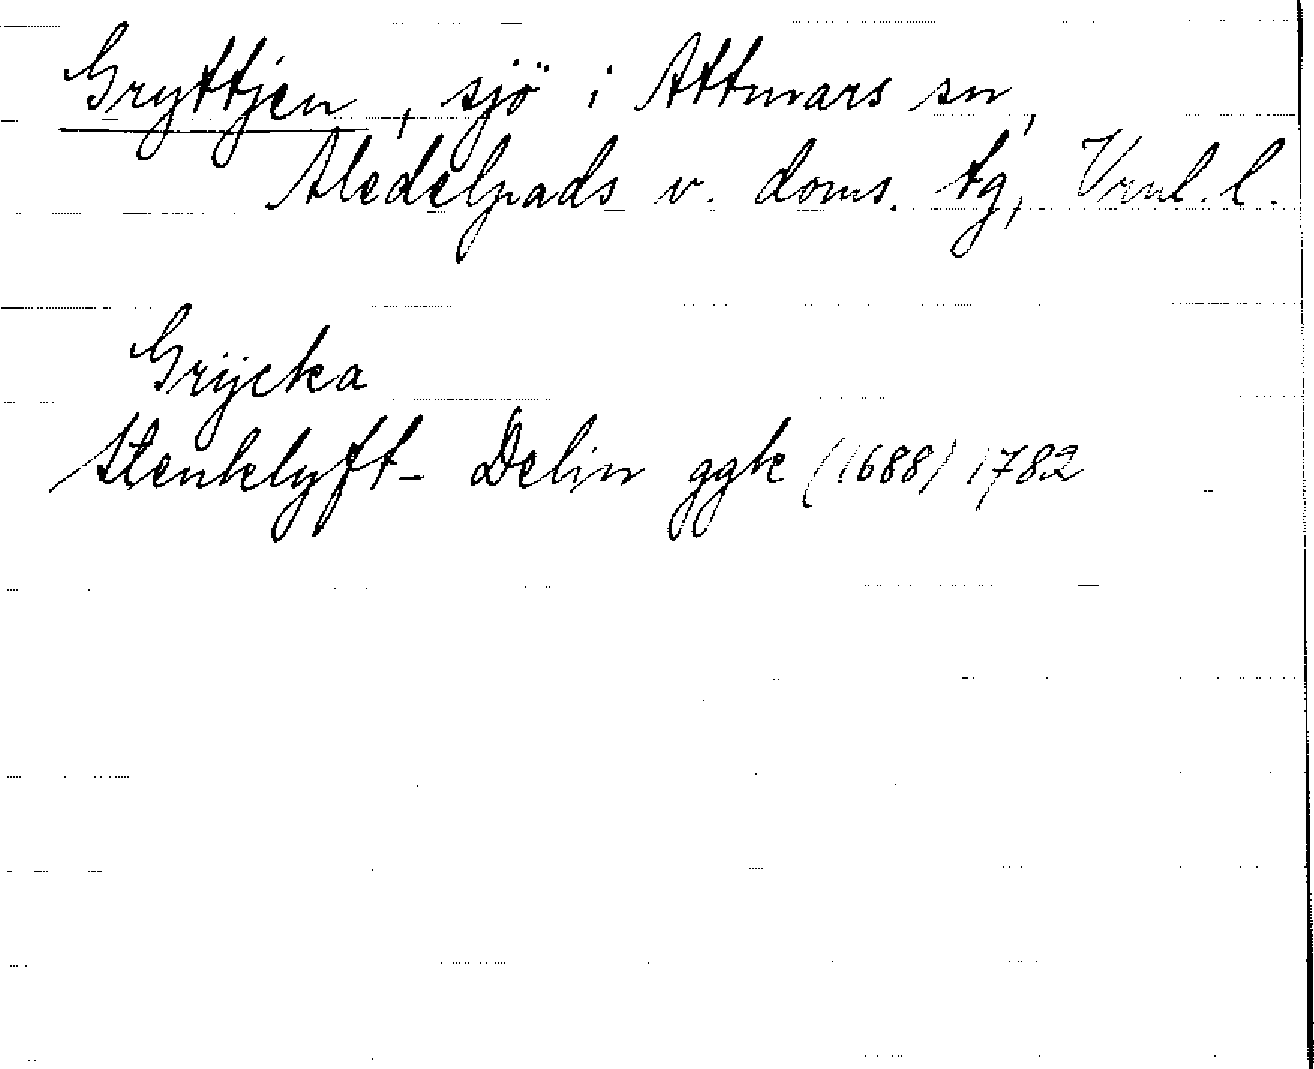 Gryttjen, sjö i Attmars sn,
Medelpads v. doms. tg, Vrnl. l.
Grÿcka
Stenklyft- Delin ggk (1688) 1782